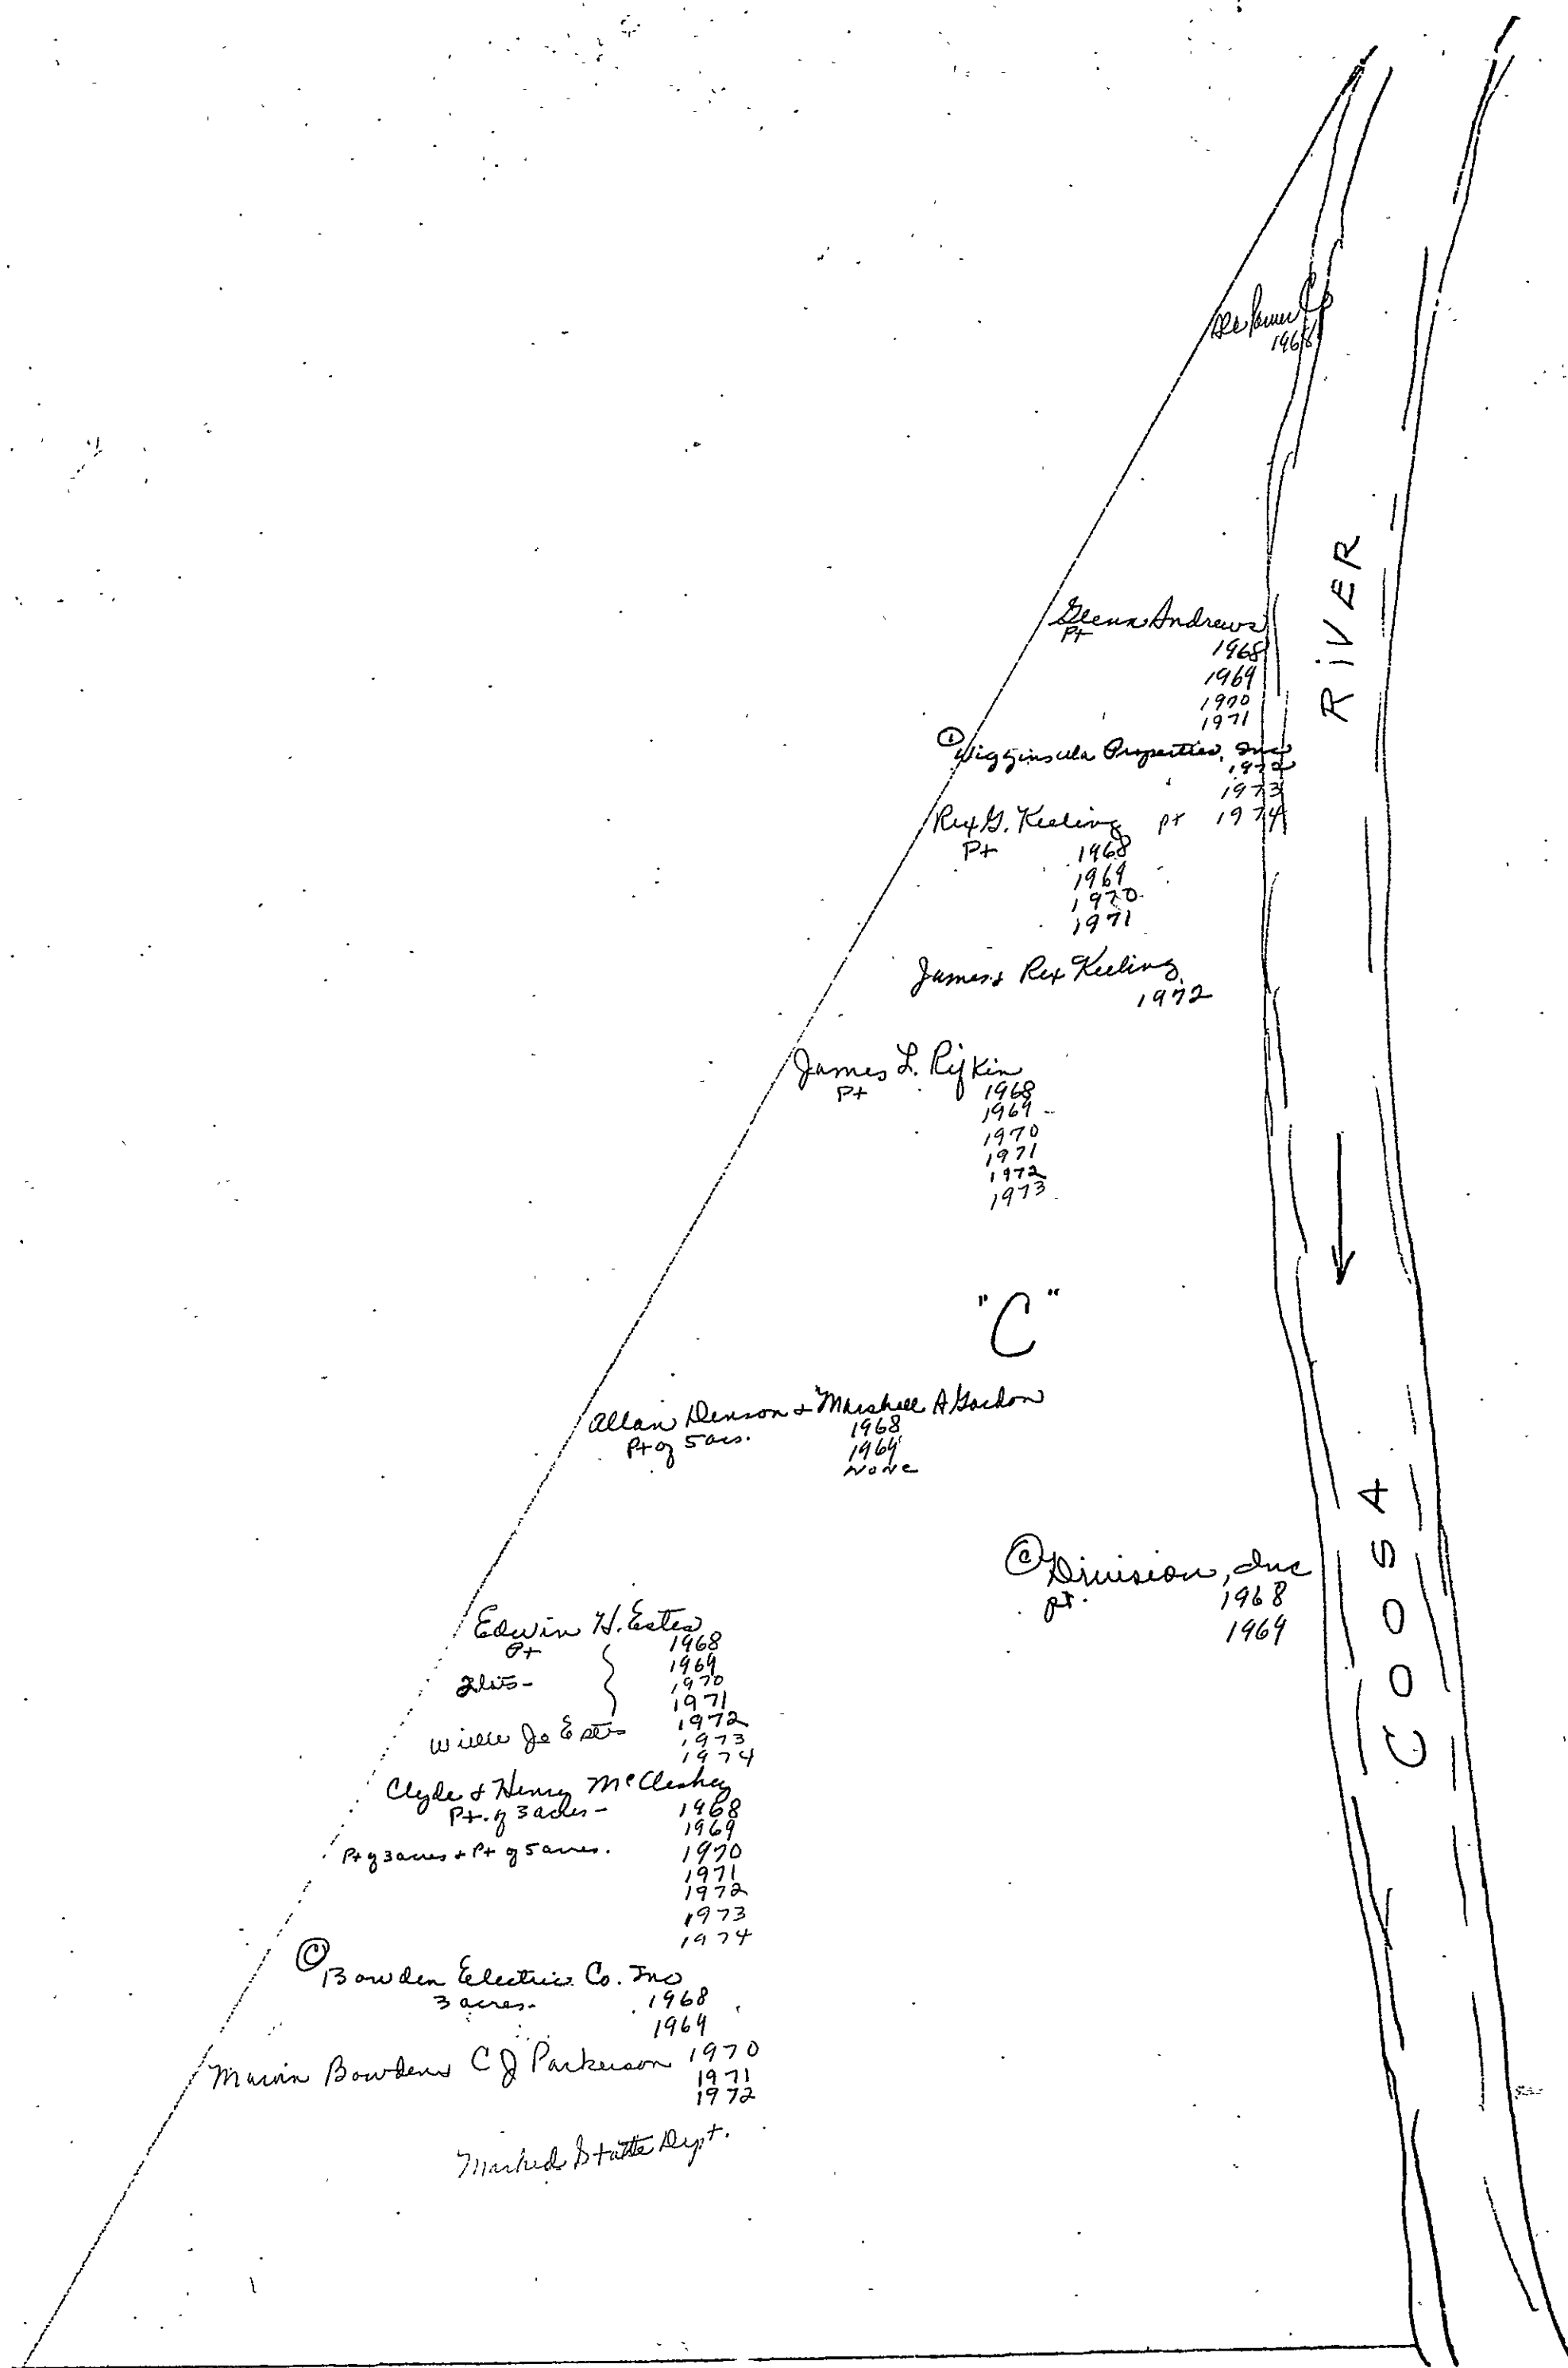 Ala Power Co
1968
RIVER
Glenn Andrews
Pt
1968
1969
1970
1971
①
Wigginsula Properties, Inc
1972
1973
Rex G. Keeling pt 1974
Pt 1968
1969
1970
1971
James & Rex Keeling
1972
James L. Rifkin
Pt 1968
1969
1970
1971
1972
1973
"C"
Allan Denson & Marshall A Gordon
Pt of 5 acs. 1968
1969
None
© Division, Inc
pt. 1968
1969
COOSA
Edwin H. Estes
Pt 1968
1969
2 lots- 1970
1971
Willie Jo Estes 1972
1973
1974
Clyde & Henry McCleskey
Pt. of 3 acres - 1968
1969
Pt of 3 acres + Pt of 5 acres. 1970
1971
1972
1973
1974
© Bowden Electric Co. Inc
3 acres- 1968
1969
Marvin Bowden & C J Parkerson 1970
1971
1972
Marked State Dept.